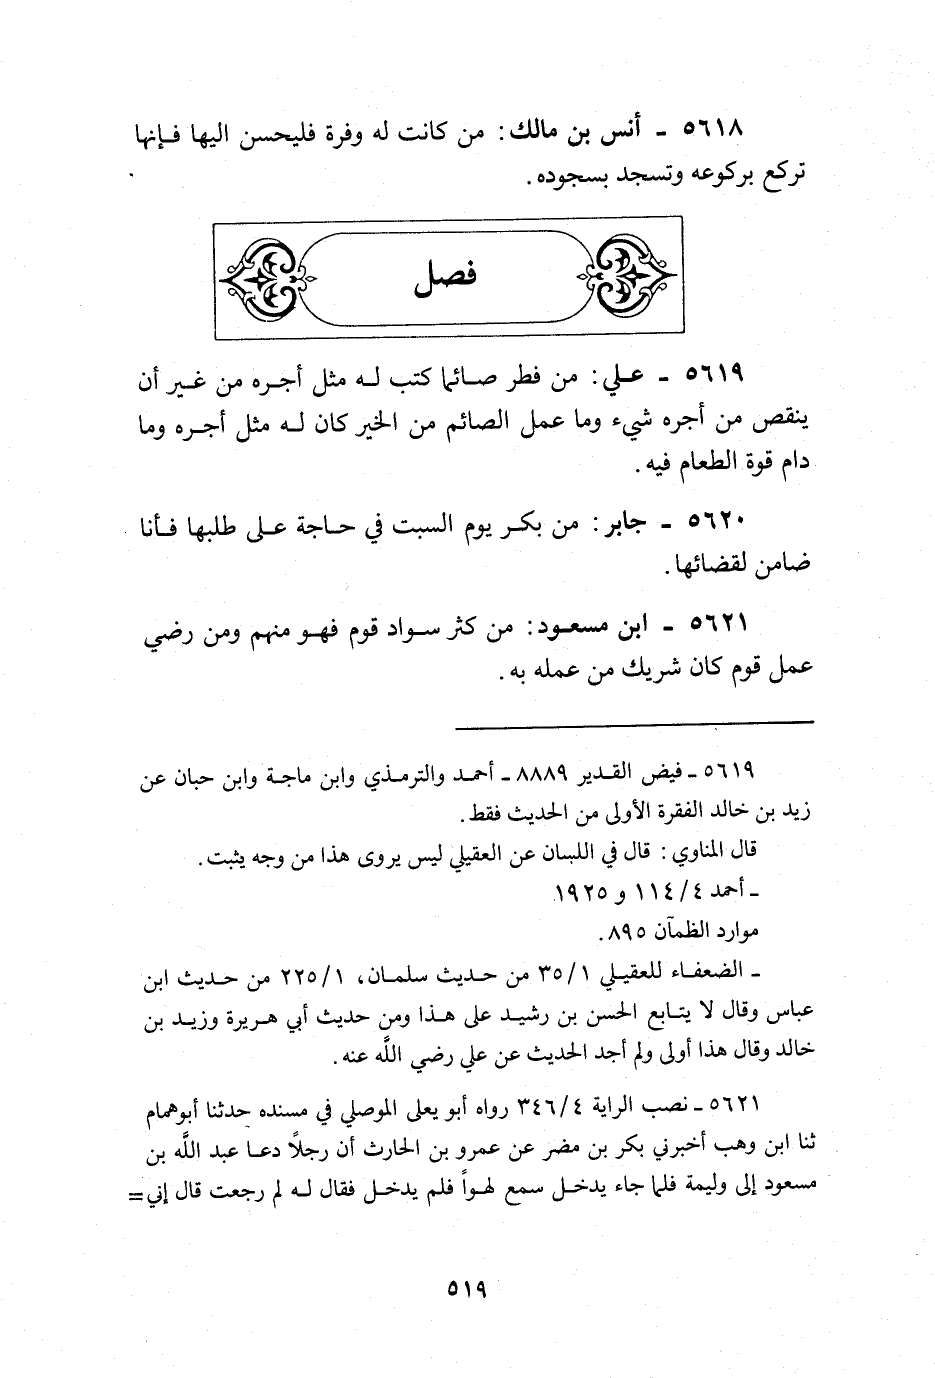 ٥٦١٨ - أنس بن مالك: من كانت له وفرة فليحسن اليها فإنها
تركع بركوعه وتسجد بسجوده.
فصل
٥٦١٩ - علي: من فطر صائما كتب له مثل أجره من غير أن
ينقص من أجره شيء وما عمل الصائم من الخير كان له مثل أجره وما
دام قوة الطعام فيه.
٥٦٢٠ - جابر: من بكر يوم السبت في حاجة على طلبها فأنا
ضامن لقضائها.
٥٦٢١ - ابن مسعود: من كثر سواد قوم فهو منهم ومن رضي
عمل قوم كان شريك من عمله به.
٥٦١٩ - فيض القدير ٨٨٨٩ - أحمد والترمذي وابن ماجة وابن حبان عن
زيد بن خالد الفقرة الأولى من الحديث فقط.
قال المناوي: قال في اللسان عن العقيلي ليس يروى هذا من وجه يثبت.
- أحمد ١١٤/٤ و ١٩٢٥
موارد الظمآن ٨٩٥.
- الضعفاء للعقيلي ٣٥/١ من حديث سلمان، ٢٢٥/١ من حديث ابن
عباس وقال لا يتابع الحسن بن رشيد على هذا ومن حديث أبي هريرة وزيد بن
خالد وقال هذا أولى ولم أجد الحديث عن علي رضي اللَّه عنه.
٥٦٢١ - نصب الراية ٣٤٦/٤ رواه أبو يعلى الموصلي في مسنده حدثنا أبوهمام
ثنا ابن وهب أخبرني بكر بن مضر عن عمرو بن الحارث أن رجلاً دعا عبد اللَّه بن
مسعود إلى وليمة فلما جاء يدخل سمع لهواً فلم يدخل فقال له لم رجعت قال إني=
٥١٩